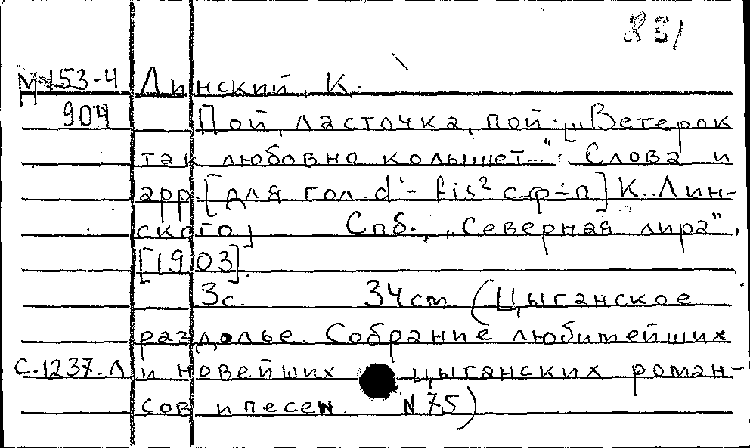 831
М 153-4 Линский К.
904 Пой, ласточка, пой. [„Ветерок
так любовно колышет“. Слова и
арр. [для гол. d¹- fis² с ф-п] К. Лин-
ского] Спб., „Северная лира“,
[1903].
3с. 34см. (Цыганское
раздолье. Собрание любимейших
С.1237.Л и новейших цыганских роман-
сов и песен. N 75)